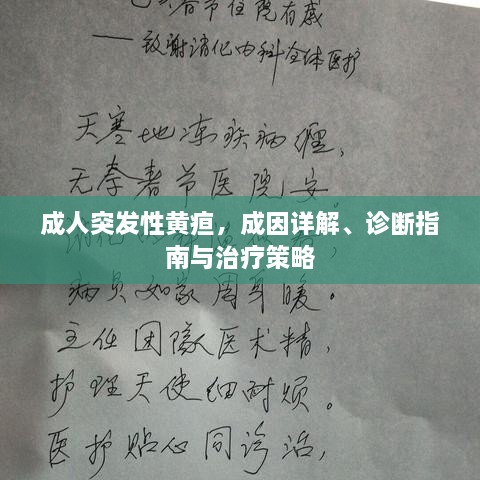 春节住院有感
——致谢消化内科全体医护
天寒地冻疾病缠，
无奈春节医院安。
成人突发性黄疸，成因详解、诊断指
南与治疗策略
病员如家周身暖。
主任团队医术精，
护理天使细耐烦。
医护贴心问诊治，